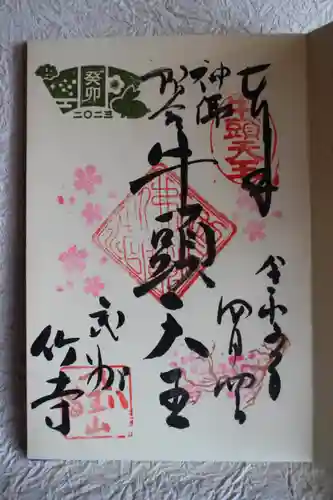 癸卯
二〇二三
神佛
習合
牛頭天王
牛頭天王
令和五年
四月四日
武州
竹寺
王山